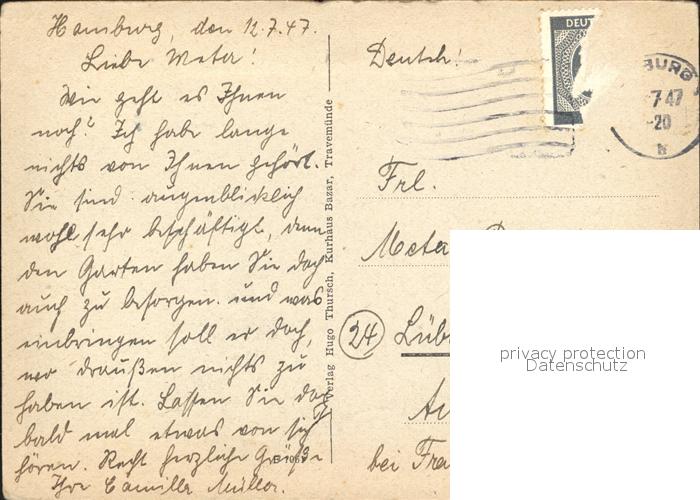 Hamburg, den 12.7.47.
Liebe Meta!
Wie geht es Ihnen
noch? Ich habe lange
nichts von Ihnen gehört.
Sie sind augenblicklich
wohl sehr beschäftigt, denn
den Garten haben Sie doch
auch zu besorgen. und was
einbringen soll er doch,
wo draußen nichts zu
haben ist. Lassen Sie doch
bald mal etwas von sich
hören. Recht herzliche Grüße
Ihre Camilla Müller.
Verlag Hugo Thursch, Kurhaus Bazar, Travemünde
Deutsch!
DEUT
BURG
7 47
-20
Frl.
Meta
24 Lüb
bei Fra
privacy protection
Datenschutz